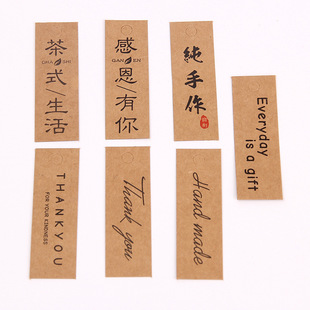 茶式/生活
CHA SHI
感恩/有你
GAN EN
純手作
Everyday
is a gift
THANKYOU
FOR YOUR KINDNESS
Thank you
Hand made